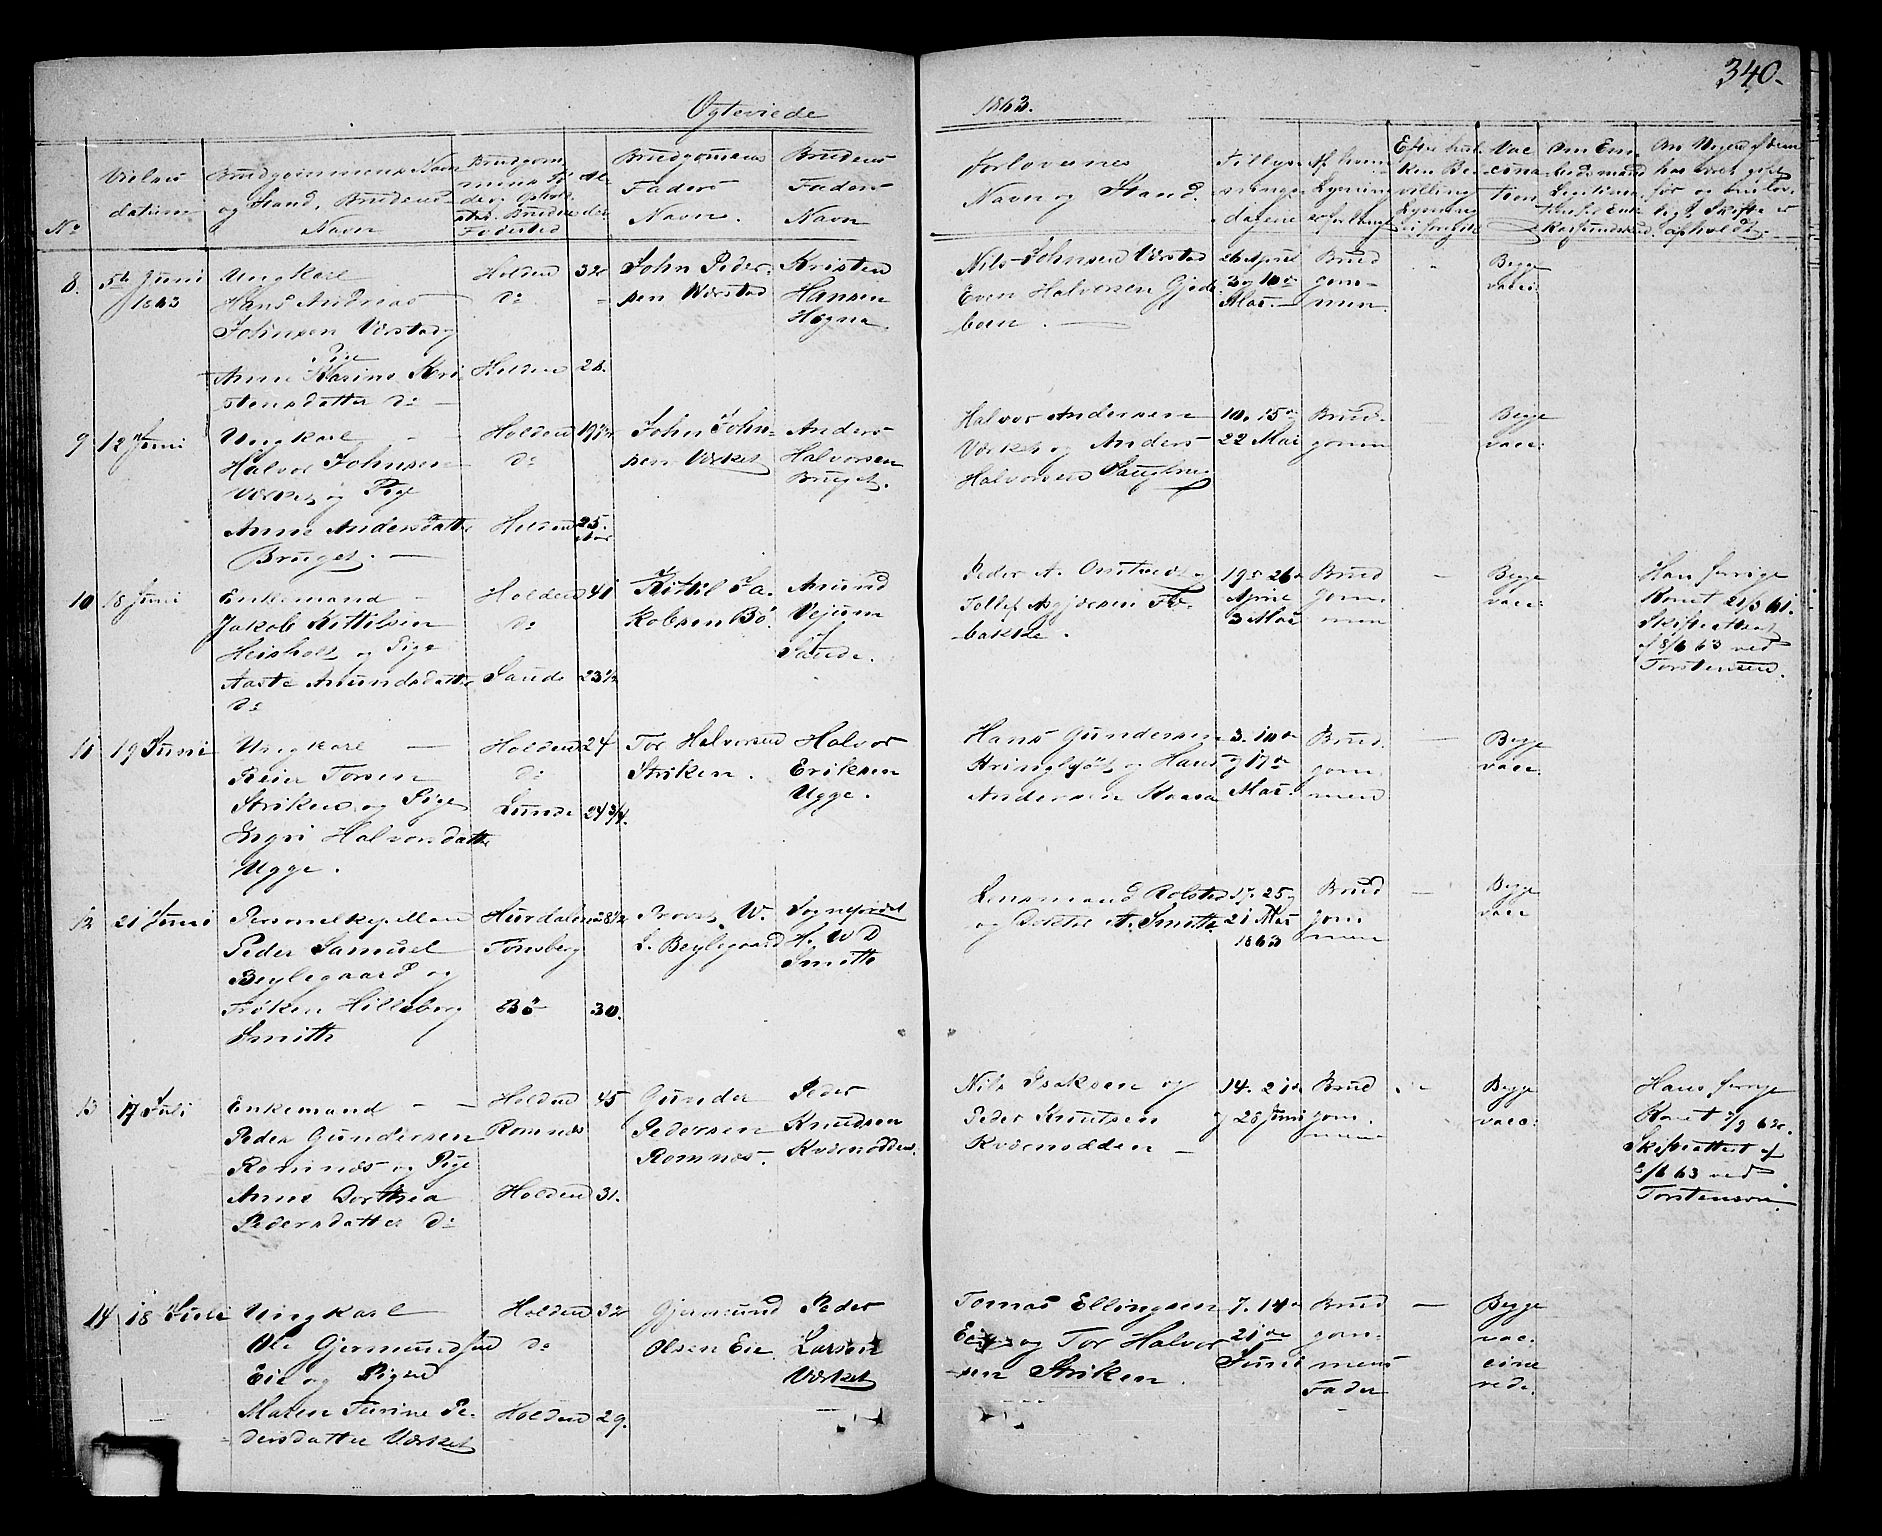 340.
Ægteviede
1863.
No
Vielses
datum
Brudgommens Navn
og Stand, Brudens
Navn
Al
der
Brudgommens
Faders
Navn.
Brudens
Faders
Navn
Forlovernes
Navn og Stand.
Tillys
nings
datene
Af hvem
Lysning
er forlangt
8.
5te Juni
1863
Ungkarl
Hans Andreas
Johnsen Værstad og
Pige
Anne Karine Kri
stensdatter do
Holden
do
Holden
32
28.
John Peder
sen Værstad
Kristen
Hansen
Hogna.
Nils Johnsen Værstad
Even Halvorsen Gjede
boen.
26 April
3 og 10de
Mai.
Brud
gom-
men.
Begge
vacc.
9
12 Juni
Ungkarl
Halvor Johnsen
Værket og Pige
Anne Andersdatte
Bruget.
Holden
do
Holden
25.
John John-
sen Værket
Anders
Halvorsen
Bruget.
Halvor Andersen
Værket og Anders
Halvorsen Saugbrug
10. 15de
22 Mai
Brud-
gomm
Begge
vacc:
10
18 Juni
Enkemand
Jakob Kittilsen
Heisholt og Pige
Aaste Amundsdatter
do
Holden
do
Saude
41
23 1/2
Kittil Ja
kobsen Bö.
Amund
Vejum
Saude.
Peder A. Omtvedt og
19. 26de
April
3 Mai
Brud
gom
men
Begge
vacc:
Hans forrige
Konet 21/3 61.
Skifteattest
af 8/6 63 ved
Torstensen.
11
19 Juni
Ungkarl
Reier Torsen
Striken og Pige
Engri Halvorsdatte
Ugge.
Holden
do
Lunde
24
24 3/4.
Tor Halvorsen
Striken.
Halvor
Eriksen
Ugge.
Hans Gundersen
og Hans
Andersen Haasa
3. 10de
og 17de
Mai.
Brud
gom
men
Begge
vacc.
12
21 Juni
Personelkapellan
Peder Samuel
Beylegaard og
Fröken Hilleborg
Smitth
Hurdalen
Tönsberg
Bö
28 1/2
30.
Provst W.
L. Beylegaard
Sogneprest
S. W D
Smitth
Lensmand Rolsted
og Doktor A. Smitth.
17. 25 og
21 Mai
1863
Brud
gom
men
Begge
vacc
13
17 Juli
Enkemand
Peder Gundersen
Romnæs og Pige
Anne Dorthea
Pedersdatter do
Holden
Romnæs
Holden
45
31.
Gunder
Pedersen
Romnæs.
Peder
Knudsen
Kvernodden.
Nils Isaksen og
Peder Knutsen
Kvernodden
14. 21de
og 28 Juni
Brud
gom.
men
Begge
vacc:
Hans forrige
Konet 7/2 62.
Skifteattest af
8/6 63 ved
Torstensen.
14
18 Juli
Ungkarl
Ole Gjermundsen
Eie og Pigen
Maren Turine Pe-
dersdatter Værket
Holden
do
Holden
32
29.
Gjermund
Olsen Eie
Peder
Larsen
Værket
Tomas Ellingsen
Eie og Tor Halvor
sen Striken.
7. 14de
21de
Juni
Brud
gom-
mens
Fader
Begge
vac:
cine
rede.